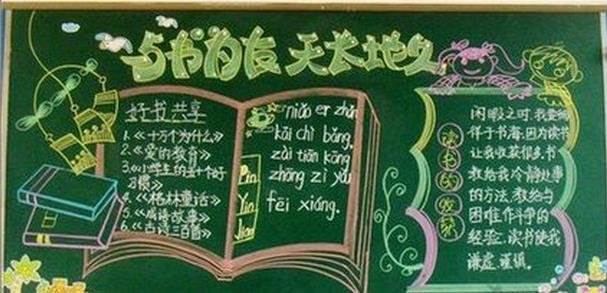 与书为友 天长地久
好书共享
1.《十万个为什么》
2.《爱的教育》
3.《小学生的五个好
习惯》
4.《格林童话》
5.《成语故事》
6.《古诗三百首》
Pin
Yin
niǎo er zhǎn
kāi chì bǎng,
zài tiān kōng
zhōng zì yóu
fēi xiáng.
读书的收获
闲暇之时,我要徜
徉于书海,因为读书
让我收获很多.书
教给我冷静处事
的方法,教给与
困难作斗争的
经验.读书使我
谦虚,谨慎.